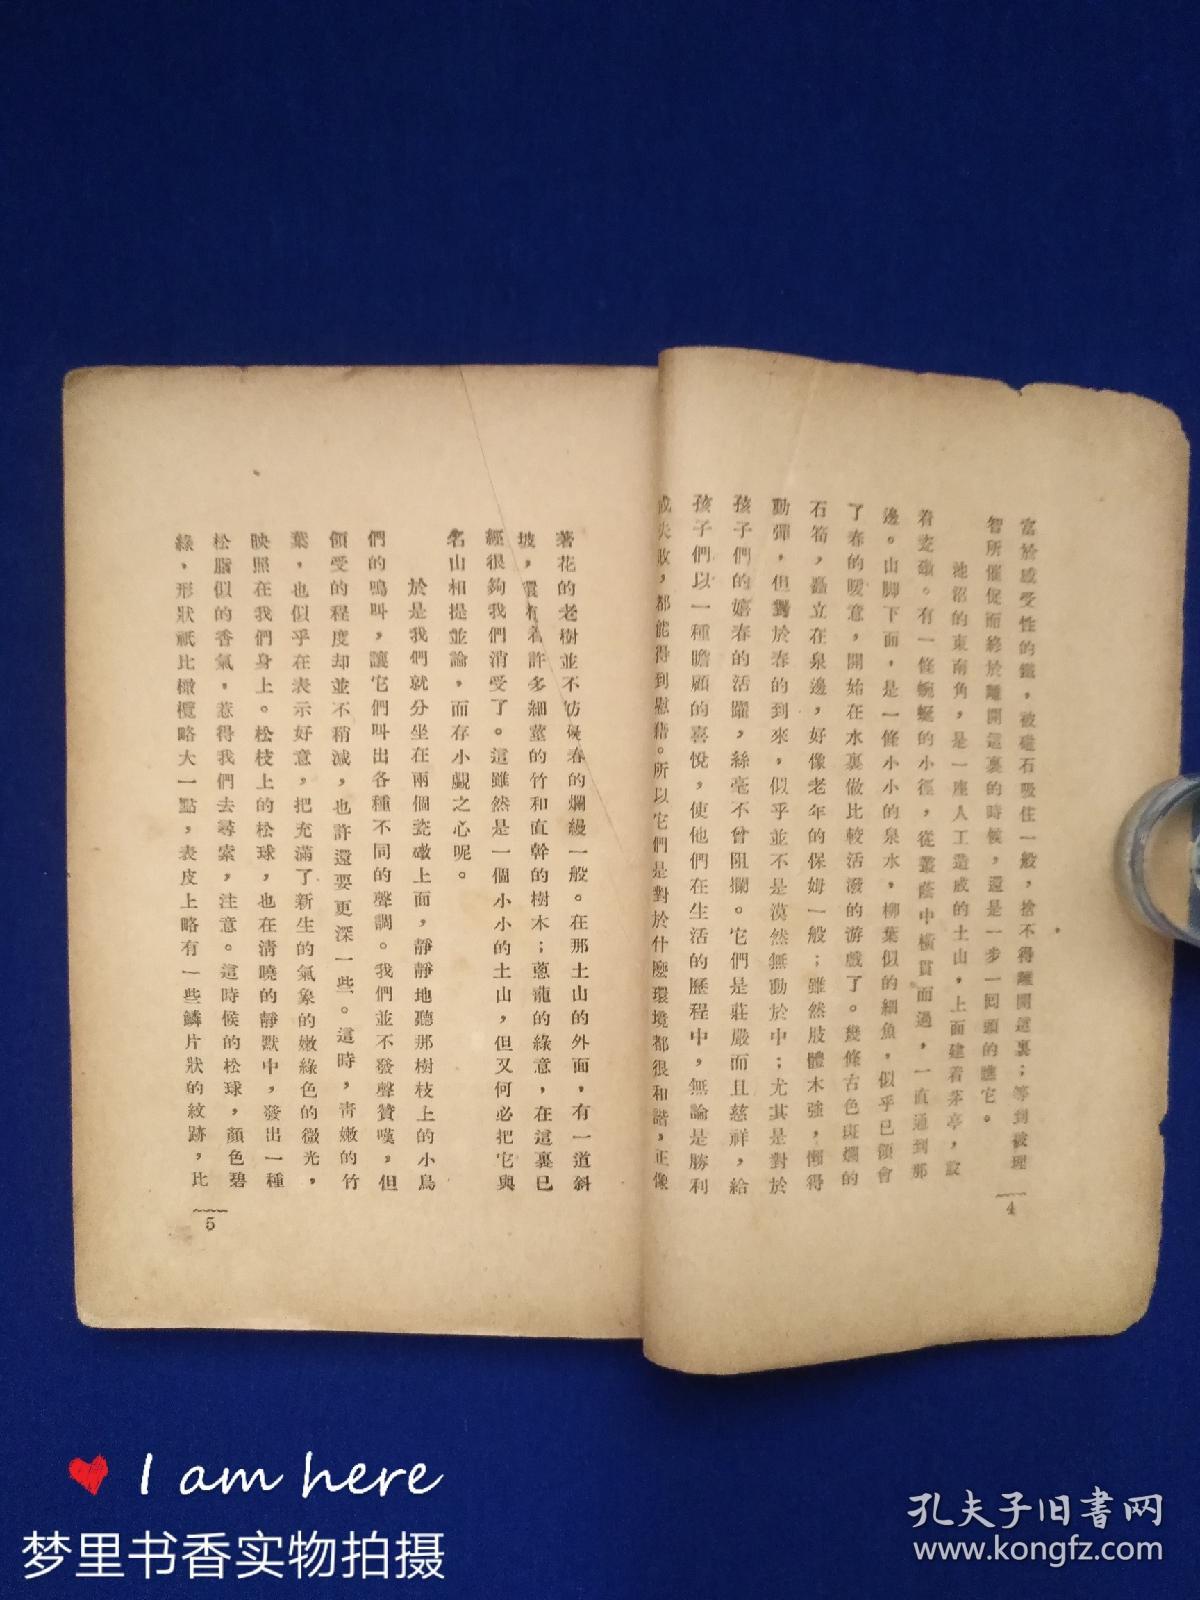 富於感受性的鐵，被磁石吸住一般，捨不得離開這裏；等到被理
智所催促而終於離開這裏的時候，還是一步一回頭的瞧它。
池沼的東南角，是一座人工造成的土山，上面建着茅亭，設
着瓷磝。有一條蜿蜒的小徑，從叢蔭中橫貫而過，一直通到那
邊。山脚下面，是一條小小的泉水，柳葉似的細魚，似乎已領會
了春的暖意，開始在水裏做比較活潑的游戲了。幾條古色斑斕的
石筍，矗立在泉邊，好像老年的保姆一般；雖然肢體木強，懶得
動彈，但對於春的到來，似乎並不是漠然無動於中；尤其是對於
孩子們的嬉春的活躍，絲毫不曾阻攔。它們是莊嚴而且慈祥，給
孩子們以一種瞻顧的喜悅，使他們在生活的歷程中，無論是勝利
或失敗，都能得到慰藉。所以它們是對於什麼環境都很和諧，正像
4
著花的老樹並不妨礙春的爛縵一般。在那土山的外面，有一道斜
坡，還有着許多細莖的竹和直幹的樹木；蔥蘢的綠意，在這裏已
經很夠我們消受了。這雖然是一個小小的土山，但又何必把它與
名山相提並論，而存小覷之心呢。
於是我們就分坐在兩個瓷磝上面，靜靜地聽那樹枝上的小鳥
們的鳴叫，讓它們叫出各種不同的聲調。我們並不發聲贊嘆，但
領受的程度却並不稍減，也許還要更深一些。這時，靑嫩的竹
葉，也似乎在表示好意，把充滿了新生的氣象的嫩綠色的微光，
映照在我們身上。松枝上的松球，也在淸曉的靜默中，發出一種
松脂似的香氣，惹得我們去尋索，注意。這時候的松球，顏色碧
綠，形狀祇比橄欖略大一點，表皮上略有一些鱗片狀的紋跡，比
5
I am here
梦里书香实物拍摄
孔夫子旧书网
www.kongfz.com